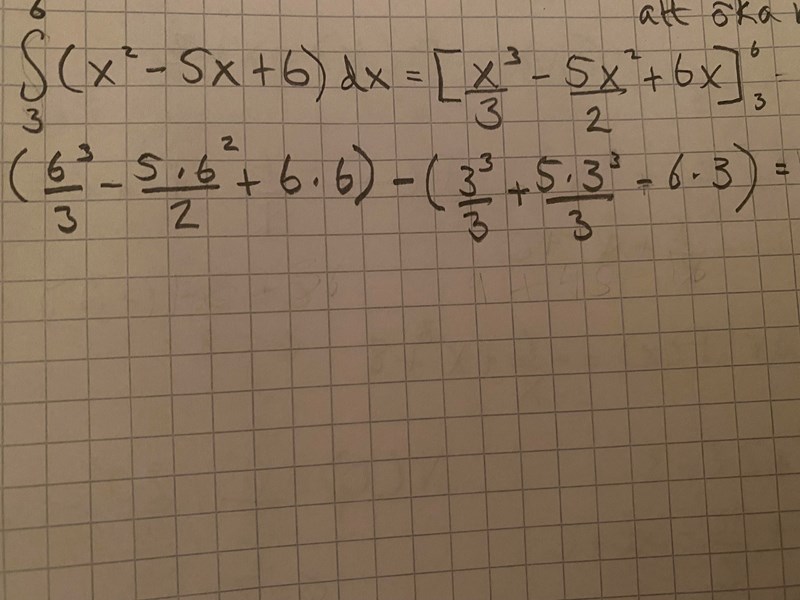 att öka
∫₃⁶ (x² - 5x + 6) dx = [x³/3 - 5x²/2 + 6x]₃⁶ -
(6³/3 - 5·6²/2 + 6·6) - (3³/3 + 5·3³/3 - 6·3) =